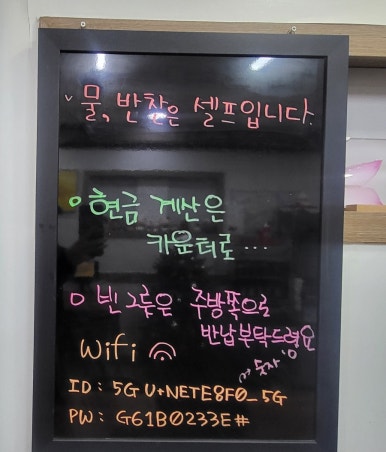 ✓물, 반찬은 셀프입니다.
○ 현금 계산은
카운터로 ...
○ 빈그릇은 주방쪽으로
반납부탁드려요
wifi
↗ 숫자 '0
ID : 5G U+NETE8F0_5G
PW : G61B0233E#